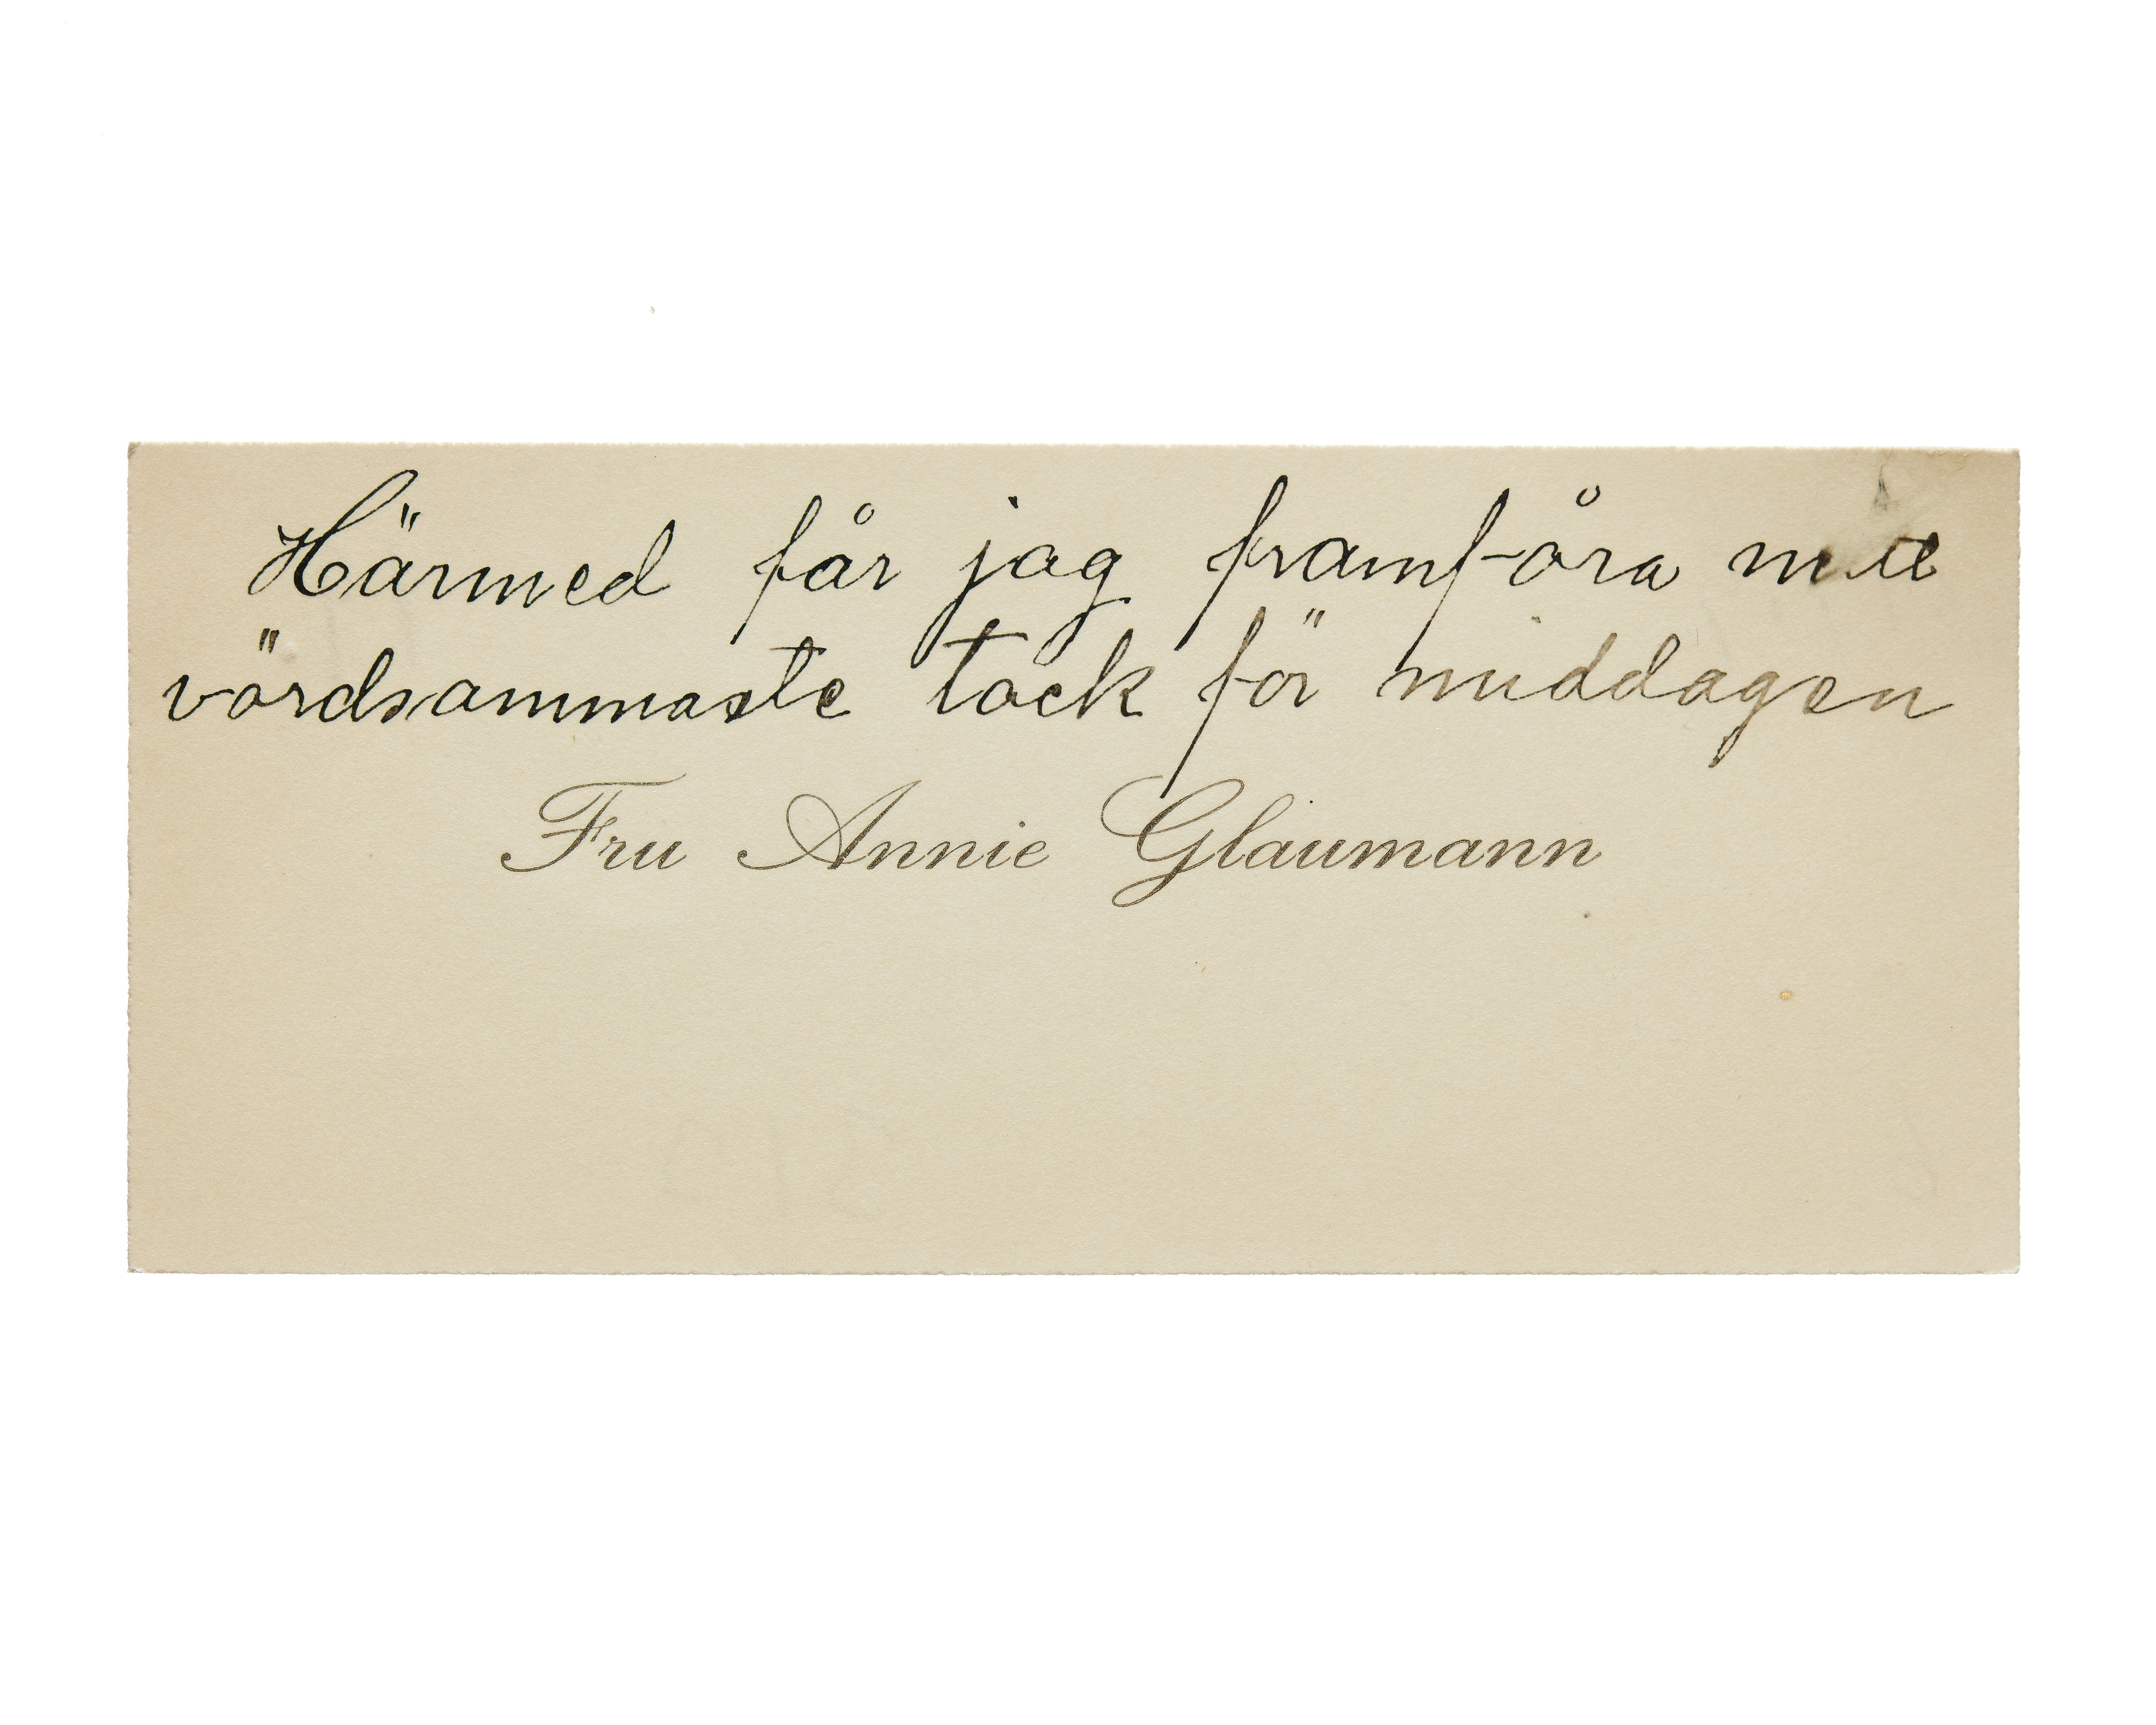 Härmed får jag framfåra
vördsammaste tack för middagen
Fru Annie Glaumann